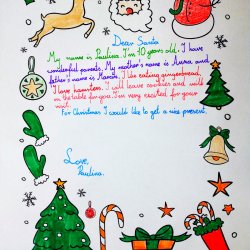 Dear Santa
My name is Paulina. I'm 10 years old. I have
wonderful parents. My mother's name is Anna and
father's name is Marcin. I like eating gingerbread.
I love hamsters. I will leave cookies and milk
on the table for you. I'm very excited for your
visit.
For Christmas I would like to get a nice present.
Love,
Paulina.